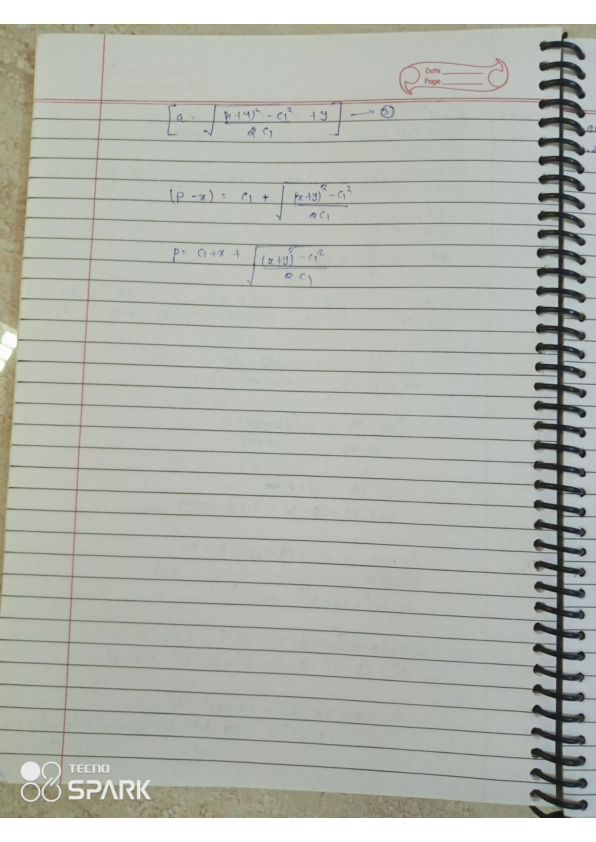 Date
Page
[a = √((x+y)² - c₁² / 2c₁) + y] → ③
(p - x) = c₁ + √((x+y)² - c₁² / 2c₁)
p = c₁ + x + √((x+y)² - c₁² / 2c₁)
TECNO
SPARK